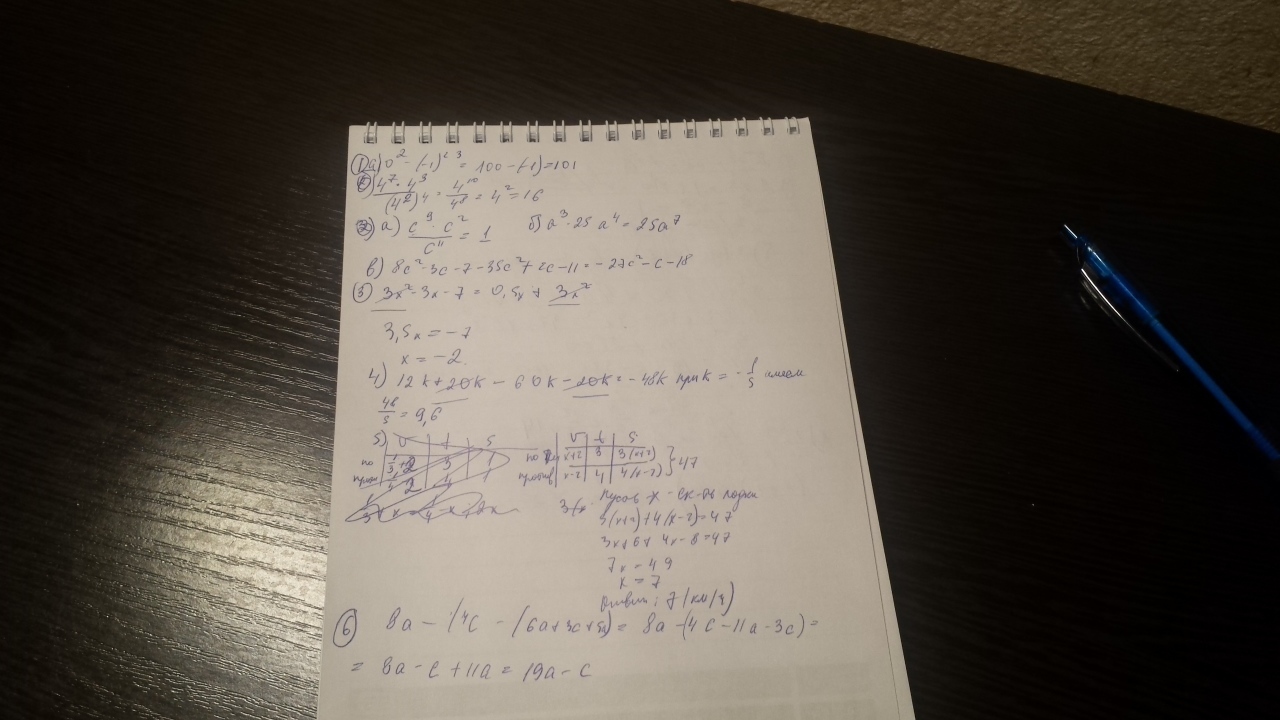 1) а) 10² - (-1)³ = 100 - (-1) = 101
2) 4⁷ · 4³ / (4²)⁴ = 4¹⁰ / 4⁸ = 4² = 16
а) c⁹ · c² / c¹¹ = 1 б) a³ · 25 a⁴ = 25a⁷
в) 8c² - 3c - 7 - 35c² + 2c - 11 = - 27c² - c - 18
3) 3x² - 3x - 7 = 0,5x + 3x²
3,5x = -7
x = -2
4) 12k + 20k - 60k - 20k = - 48k при k = - 1/5 имеем
48/5 = 9,6
5) v t s
по x+2 3 3(x+2)
против x-2 4 4(x-2) } 47
Пусть x - ск-ть лодки
3(x+2) + 4(x-2) = 47
3x + 6 + 4x - 8 = 47
7x = 49
x = 7
Ответ: 7 (км/ч)
6 8a - (4c - (6a + 3c + 5a) = 8a - (4c - 11a - 3c) =
= 8a - c + 11a = 19a - c